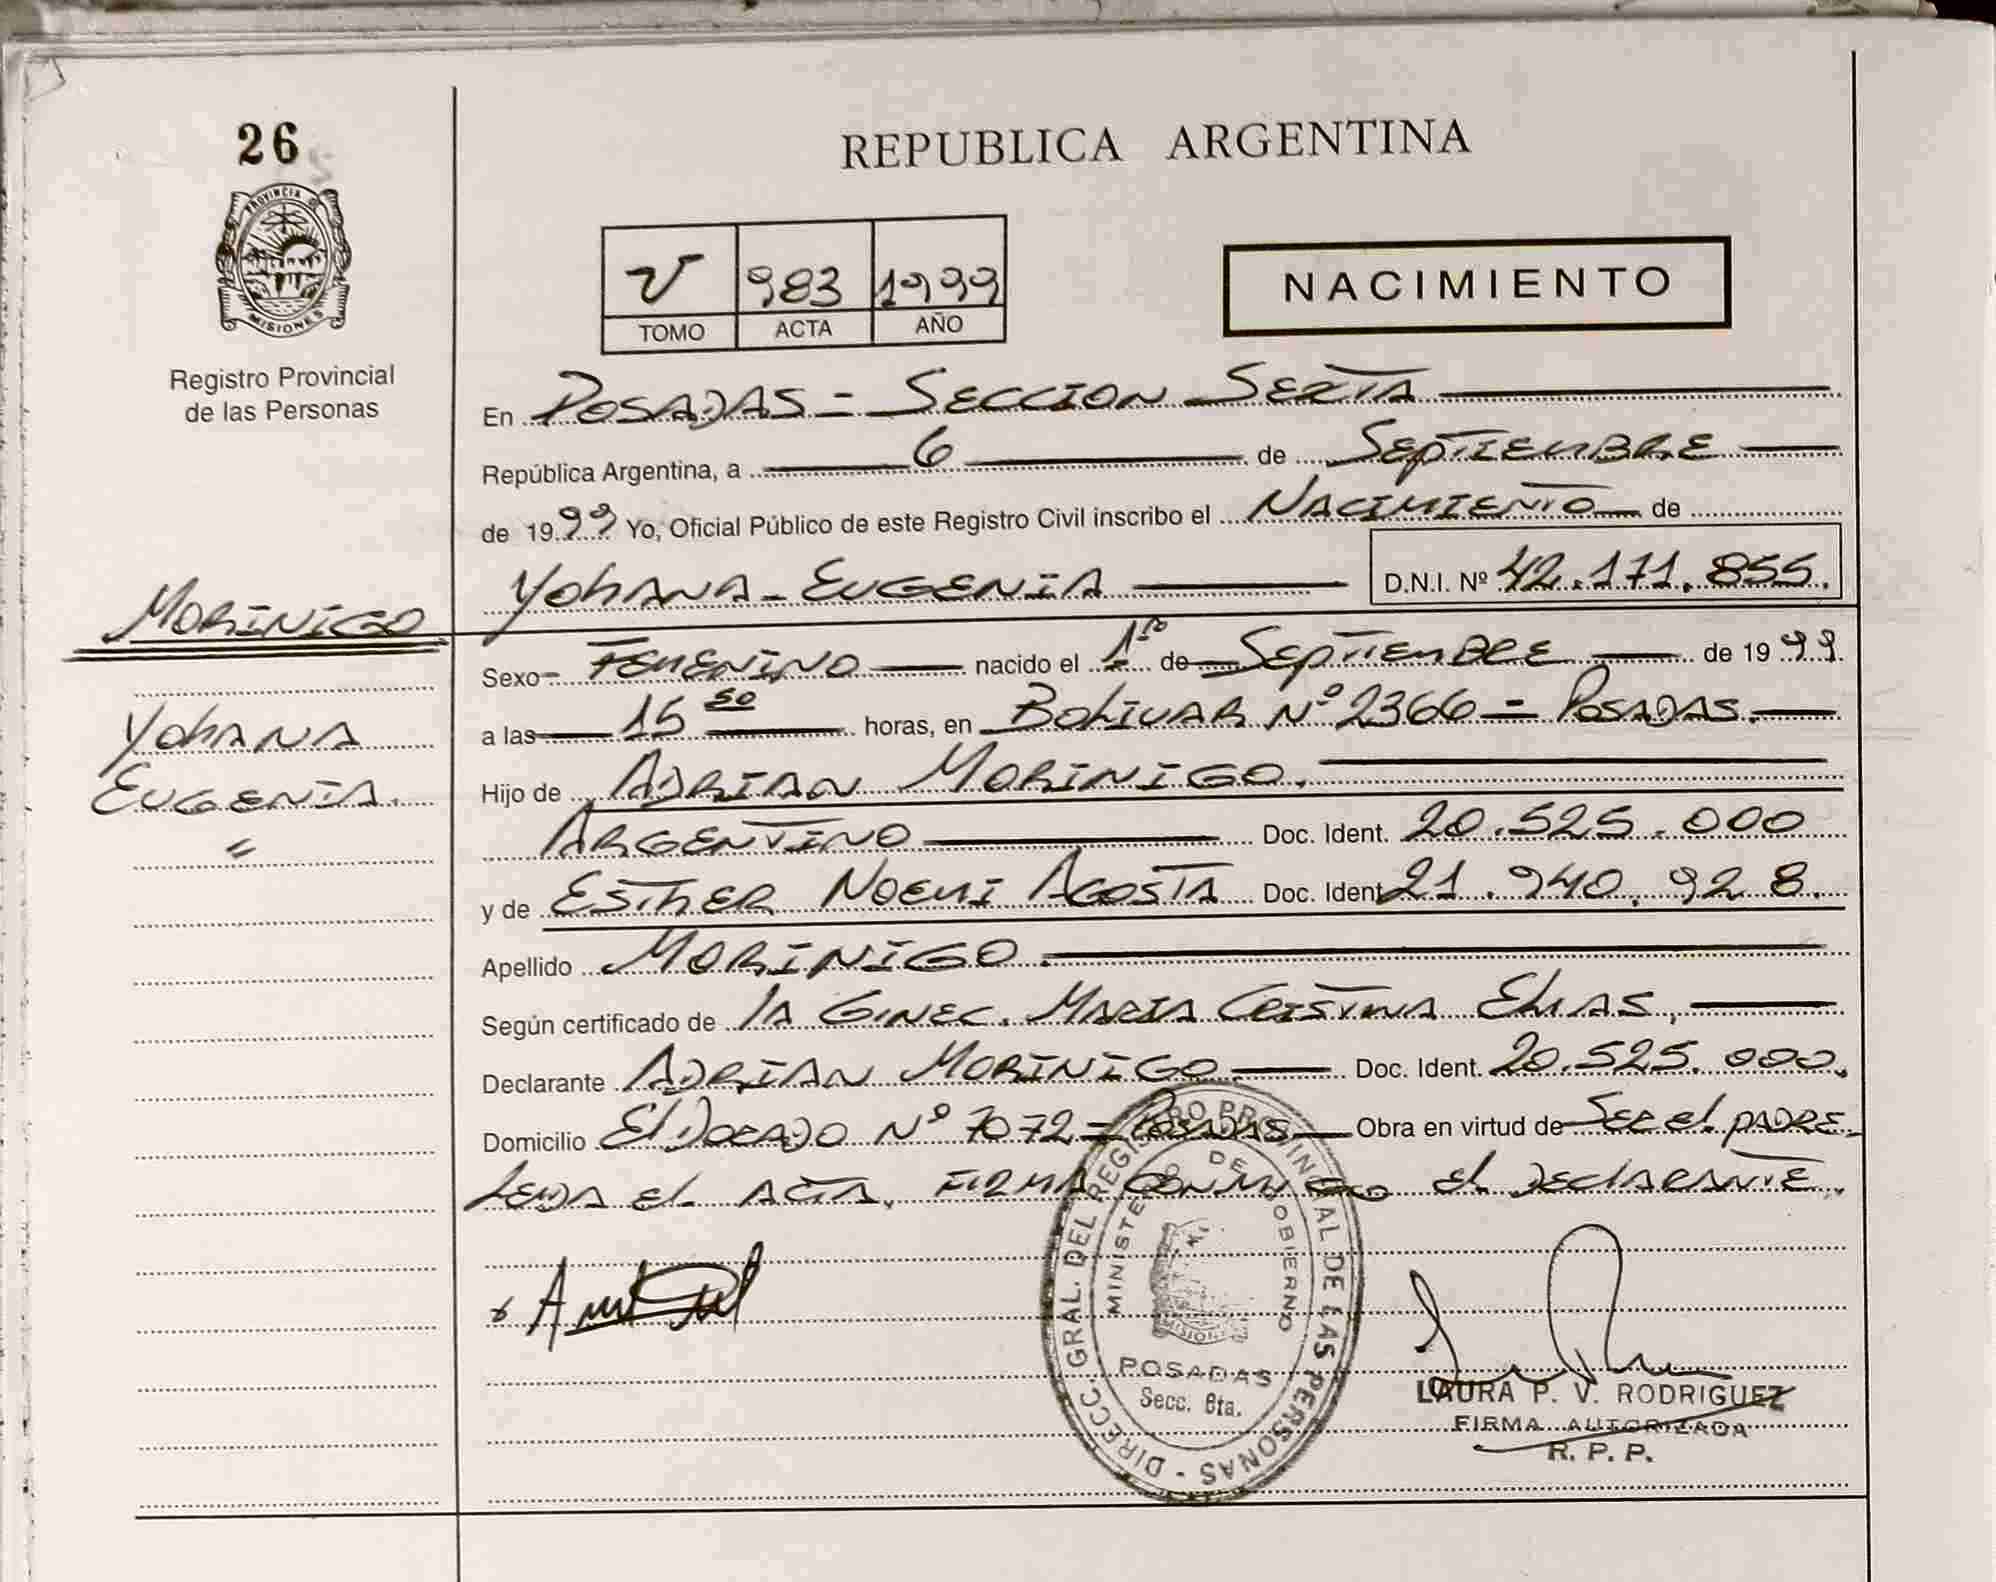 26
REPUBLICA ARGENTINA
PROVINCIA DE
MISIONES
Registro Provincial
de las Personas
V 983 1999
TOMO ACTA AÑO
NACIMIENTO
En POSADAS - SECCION SEXTA
República Argentina, a 6 de SEPTIEMBRE
de 1999 Yo, Oficial Público de este Registro Civil inscribo el NACIMIENTO de
YOHANA - EUGENIA D.N.I. Nº 42.171.855.
MORINIGO
YOHANA
EUGENIA.
Sexo FEMENINO nacido el 1ro de SEPTIEMBRE de 1999.
a las 15 50 horas, en BOLIVAR Nº 2366 - POSADAS.
Hijo de ADRIAN MORINIGO.
ARGENTINO Doc. Ident. 20.525.000
y de ESTHER NOEMI AGOSTA Doc. Ident 21.940.928.
Apellido MORINIGO.
Según certificado de la GINEC. MARIA CRISTINA ELIAS,
Declarante ADRIAN MORINIGO Doc. Ident. 20.525.000.
Domicilio ElDORADO Nº 7072 - POSADAS Obra en virtud de SER el PADRE.
LEIDA el ACTA, FIRMA CONMIGO el DECLARANTE.
DIRECC. GRAL. DEL REGISTRO PROVINCIAL DE LAS PERSONAS -
MINISTERIO DE GOBIERNO
MISIONES
POSADAS
Secc. 6ta.
LAURA P. V. RODRIGUEZ
FIRMA AUTORIZADA
R. P. P.